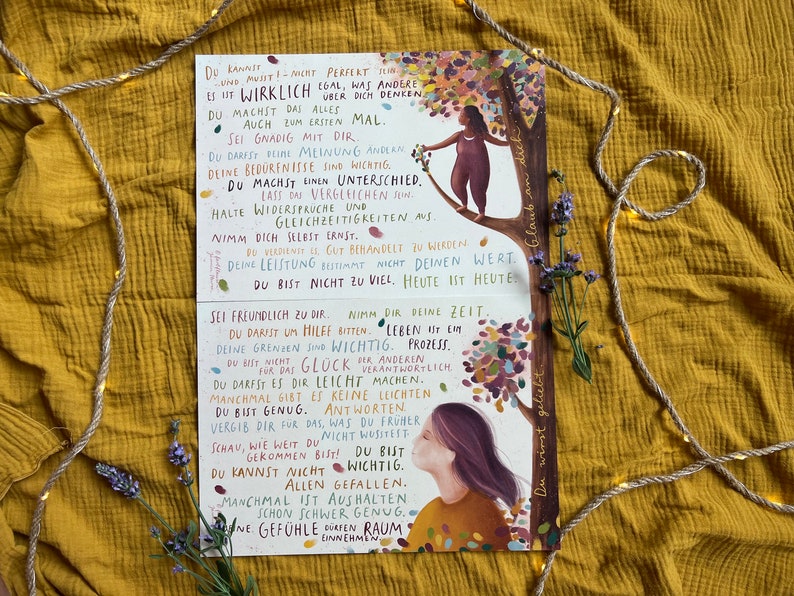 DU KANNST
...UND MUSST! - NICHT PERFEKT SEIN.
ES IST WIRKLICH EGAL, WAS ANDERE
ÜBER DICH DENKEN.
DU MACHST DAS ALLES
AUCH ZUM ERSTEN MAL.
SEI GNÄDIG MIT DIR.
DU DARFST DEINE MEINUNG ÄNDERN.
DEINE BEDÜRFNISSE SIND WICHTIG.
DU MACHST EINEN UNTERSCHIED.
LASS DAS VERGLEICHEN SEIN.
HALTE WIDERSPRÜCHE UND
GLEICHZEITIGKEITEN AUS.
NIMM DICH SELBST ERNST.
DU VERDIENST ES, GUT BEHANDELT ZU WERDEN.
DEINE LEISTUNG BESTIMMT NICHT DEINEN WERT.
DU BIST NICHT ZU VIEL. HEUTE IST HEUTE.
Glaub an dich.
SEI FREUNDLICH ZU DIR. NIMM DIR DEINE ZEIT.
DU DARFST UM HILFE BITTEN. LEBEN IST EIN
DEINE GRENZEN SIND WICHTIG. PROZESS.
DU BIST NICHT FÜR DAS GLÜCK DER ANDEREN VERANTWORTLICH.
DU DARFST ES DIR LEICHT MACHEN.
MANCHMAL GIBT ES KEINE LEICHTEN
DU BIST GENUG. ANTWORTEN.
VERGIB DIR FÜR DAS, WAS DU FRÜHER
NICHT WUSSTEST.
SCHAU, WIE WEIT DU
GEKOMMEN BIST! DU BIST
WICHTIG.
DU KANNST NICHT
ALLEN GEFALLEN.
MANCHMAL IST AUSHALTEN
SCHON SCHWER GENUG.
DEINE GEFÜHLE DÜRFEN RAUM
EINNEHMEN.
Du wirst geliebt.